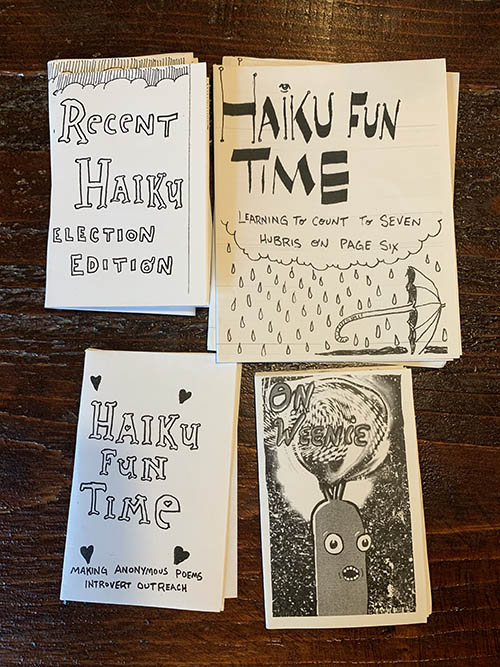 RECENT
HAIKU
ELECTION
EDITION
HAIKU FUN
TIME
LEARNING TO COUNT TO SEVEN
HUBRIS ON PAGE SIX
HAIKU
FUN
TIME
MAKING ANONYMOUS POEMS
INTROVERT OUTREACH
ON
WEENIE